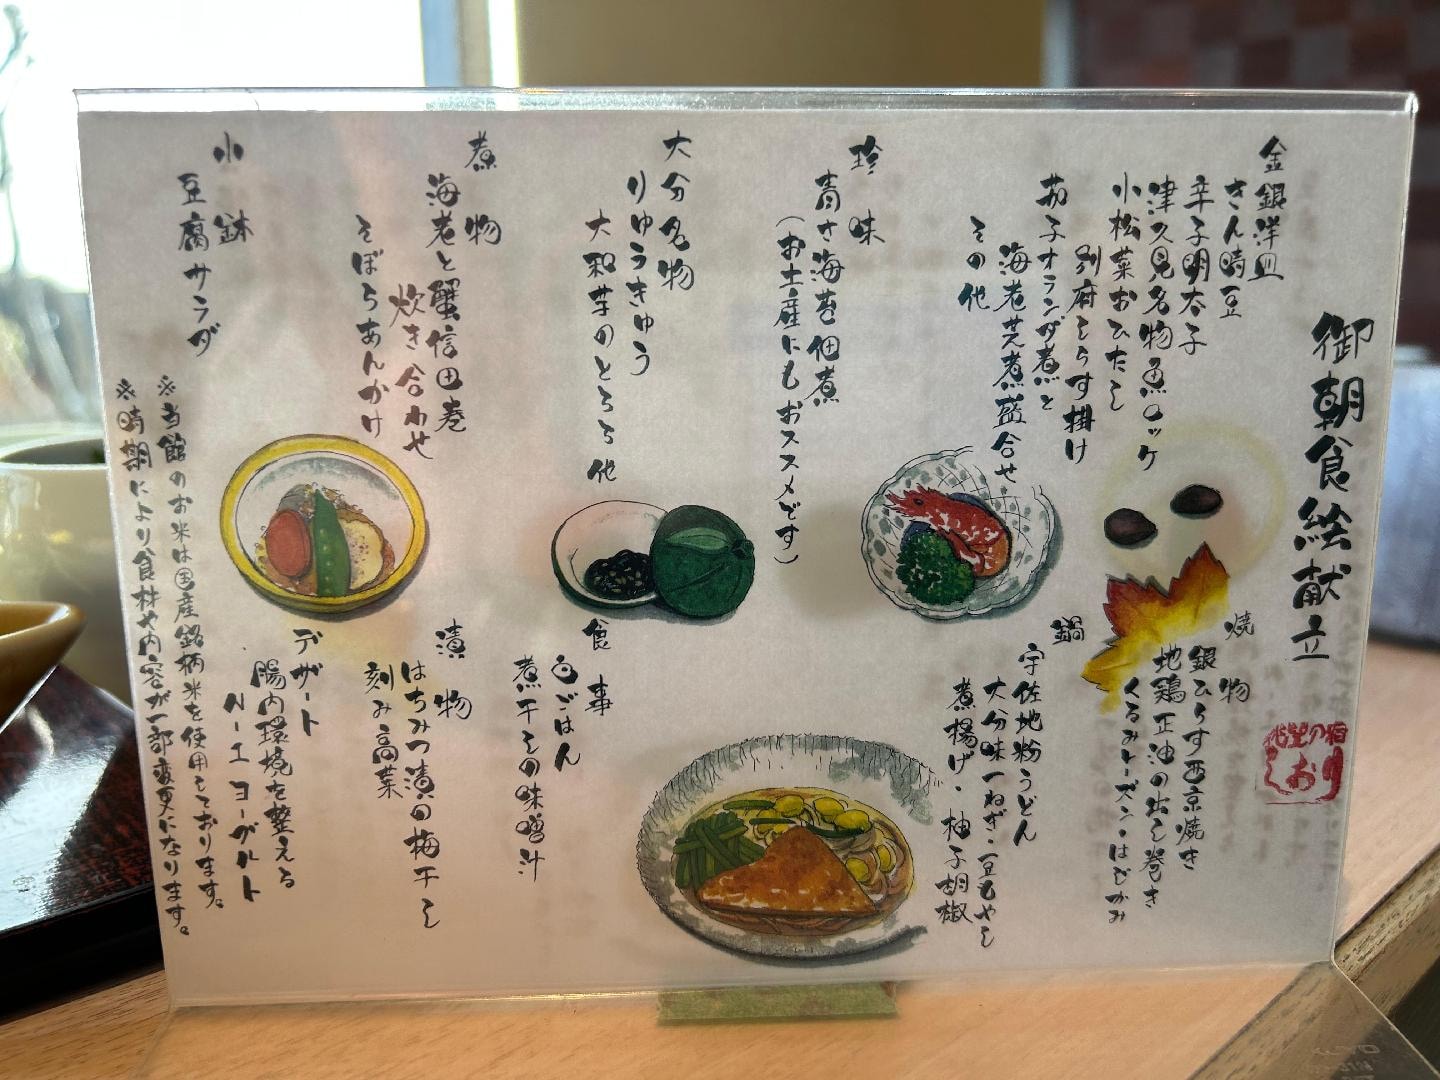 御朝食絵献立
金銀洋皿
きん時豆
辛子明太子
津久見名物魚ロッケ
小松菜おひたし
別府しらす掛け
茄子オランダ煮と
海老芝煮焚合せ
その他
珍味
青さ海苔佃煮
（お土産にもおススメです）
大分名物
りゅうきゅう
大和芋のとろろ 他
煮物
海老と蟹信田巻
炊き合わせ
そぼろあんかけ
小鉢
豆腐サラダ
焼物
銀ひらす西京焼き
地鶏正油の出し巻き
くるみレーズン・はじかみ
鍋
宇佐地粉うどん
大分味一ねぎ・豆もやし
煮揚げ・柚子胡椒
食事
白ごはん
煮干しの味噌汁
漬物
はちみつ漬の梅干し
刻み高菜
デザート
腸内環境を整える
ヨーグルト
※当館のお米は国産銘柄米を使用しております。
※時期により食材や内容が一部変更になります。